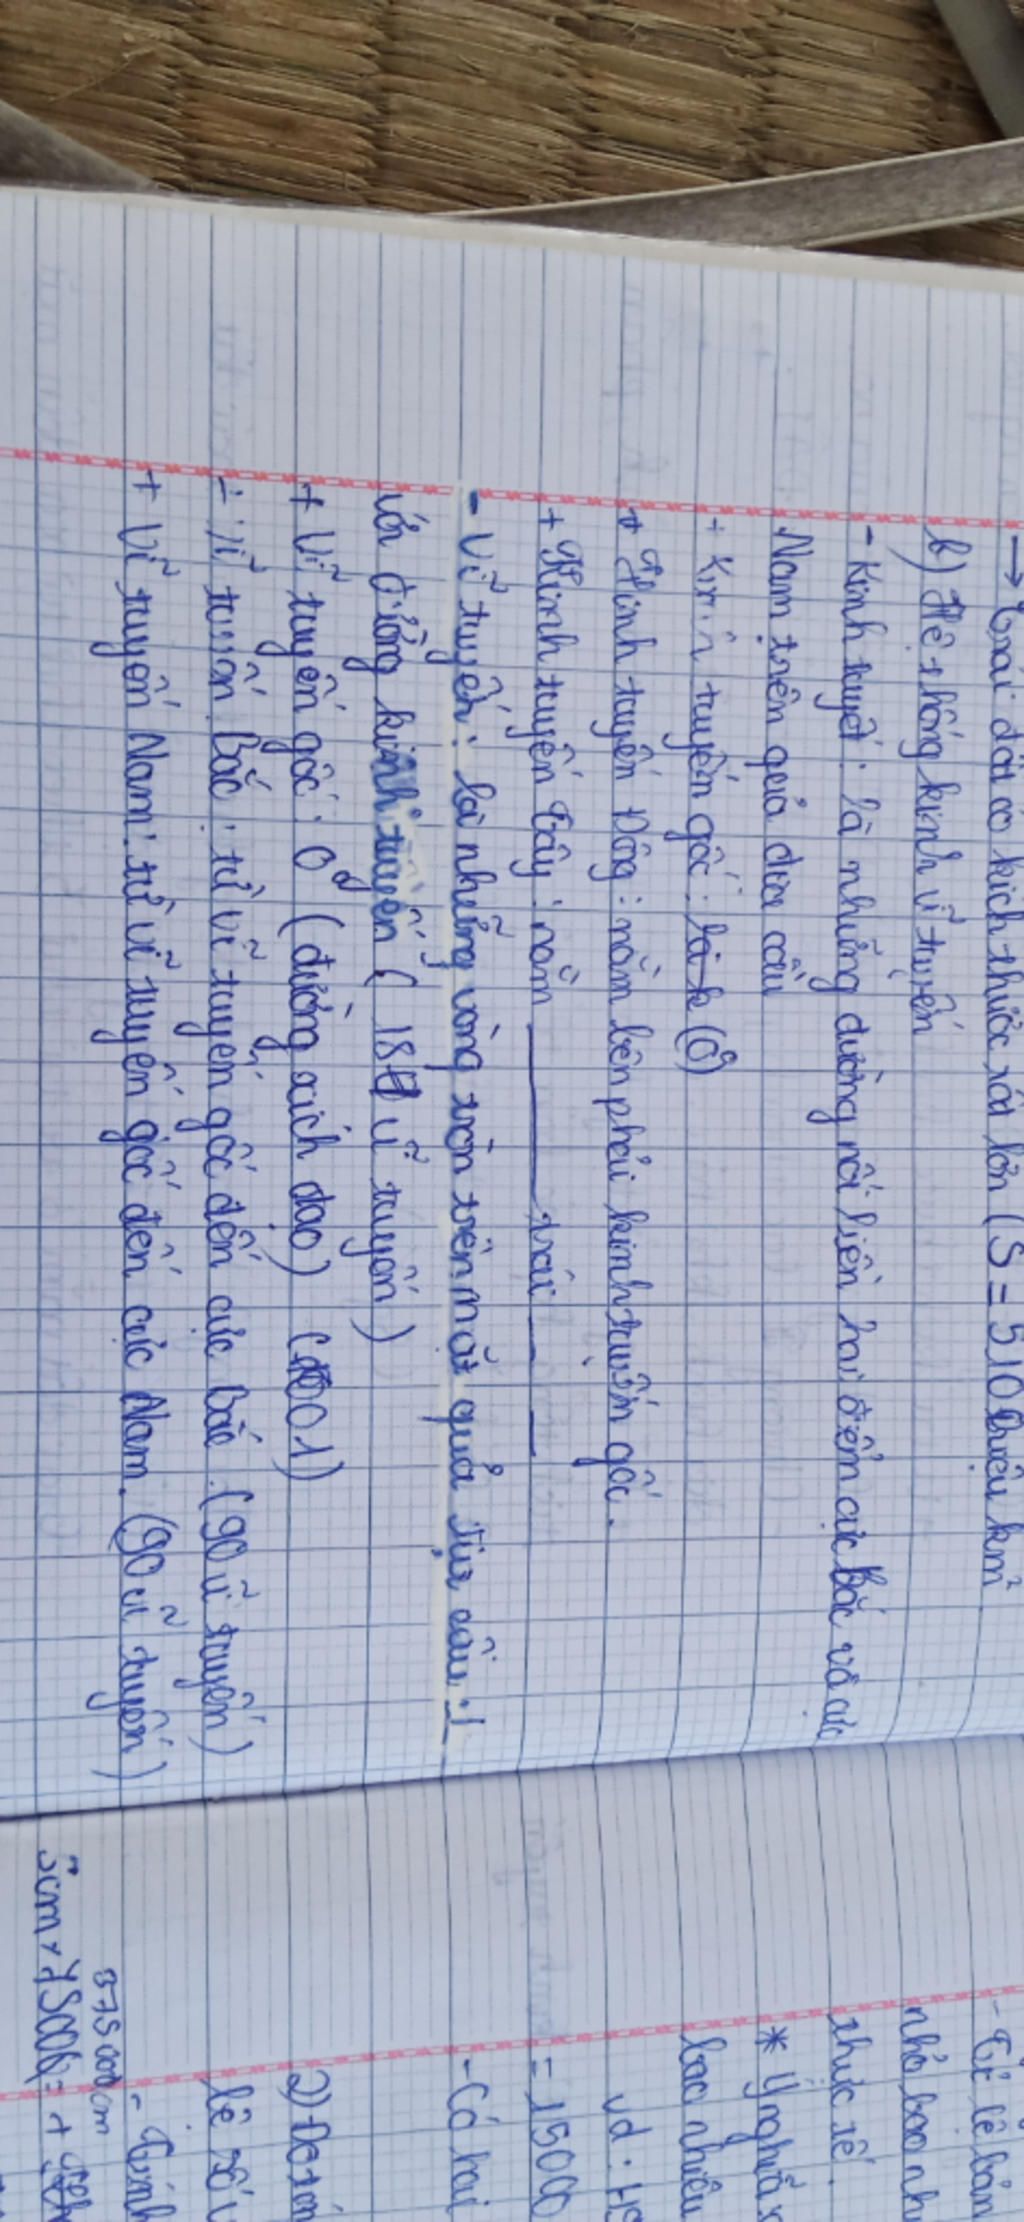 → Trái đất có kích thước rất lớn (S = 510 triệu km²
b) Hệ thống kinh vĩ tuyến
- Kinh tuyết : là những đường nối liền hai điểm cực Bắc và cực
Nam trên quả địa cầu
+ Kinh tuyến gốc : (0°)
+ Kinh tuyến Đông : nằm bên phải kinh tuyến gốc.
+ Kinh tuyến Tây : nằm ——— trái — —
- Vĩ tuyến : là những vòng tròn trên mặt quả địa cầu :⊥
với đường kinh tuyến ( 181 vĩ tuyến )
+ Vĩ tuyến gốc : 0° (đường xích đạo) (001)
+ Vĩ tuyến Bắc : từ vĩ tuyến gốc đến cực bắc. (90 vĩ tuyến)
+ Vĩ tuyến Nam : từ vĩ tuyến gốc đến cực Nam. (90 vĩ tuyến)
- Tỉ lệ bản
nhỏ bao nh
thực tế.
* Ý nghĩa
bao nhiêu
vd :
= 15000
- Có hai
2) Đo
lệ số
- Tính
37500cm
5cm × 7500 = +